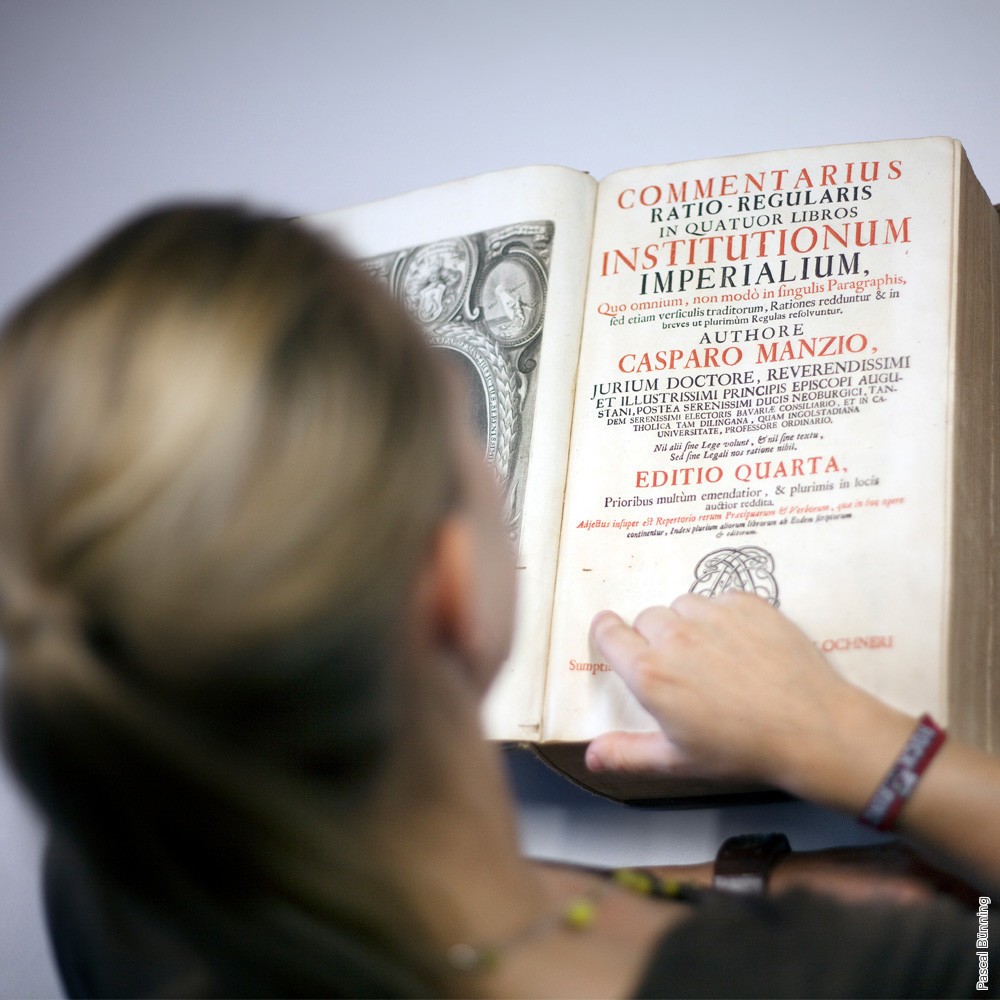 COMMENTARIUS
RATIO-REGULARIS
IN QUATUOR LIBROS
INSTITUTIONUM
IMPERIALIUM,
Quo omnium, non modò in ſingulis Paragraphis,
ſed etiam verſiculis traditorum, Rationes redduntur & in
breves ut plurimùm Regulas reſolvuntur.
AUTHORE
CASPARO MANZIO,
JURIUM DOCTORE, REVERENDISSIMI
ET ILLUSTRISSIMI PRINCIPIS EPISCOPI AUGU-
STANI, POSTEA SERENISSIMI DUCIS NEOBURGICI, TAN-
DEM SERENISSIMI ELECTORIS BAVARIÆ CONSILIARIO, ET IN CA-
THOLICA TAM DILINGANA, QUAM INGOLSTADIANA
UNIVERSITATE, PROFESSORE ORDINARIO.
Nil alii ſine Lege volunt, & nil ſine textu,
Sed ſine Legali nos ratione nihil.
EDITIO QUARTA,
Prioribus multùm emendatior, & plurimis in locis
auctior reddita.
Adjectus inſuper eſt Repertorio rerum Præcipuarum & Verborum, quæ in hoc opere
continentur, Index plurium aliorum librorum ab Eodem ſcriptorum
& editorum.
Sumpti
LOCHNERI
Pascal Bünning